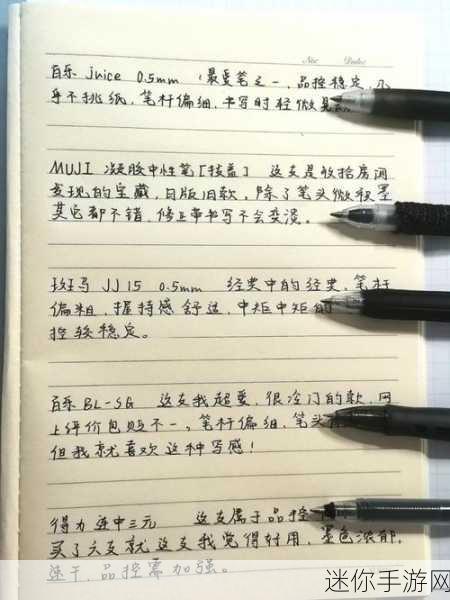 No.
Date.
百乐 Juice 0.5mm ，最爱笔之一，品控稳定，几
乎不挑纸，笔杆偏细，书写时轻微
MUJI 凝胶中性笔［拔盖］ 这支是收拾房间
发现的宝藏，日版旧款，除了笔头微积墨
其它都不错，修正带书写不会变浅。
斑马 JJ15 0.5mm 经典中的经典，笔杆
偏粗，握持感舒适，中矩中矩的
控较稳定。
百乐 BL-SG 这支我超爱，很冷门的款，网
上评价包贬不一，笔杆偏细，笔头
但我就喜欢这种写感！
得力 连中三元 这支属于品控
买了六支就这支我觉得好用，墨色浓郁，
速干，品控需加强。
迷你手游网